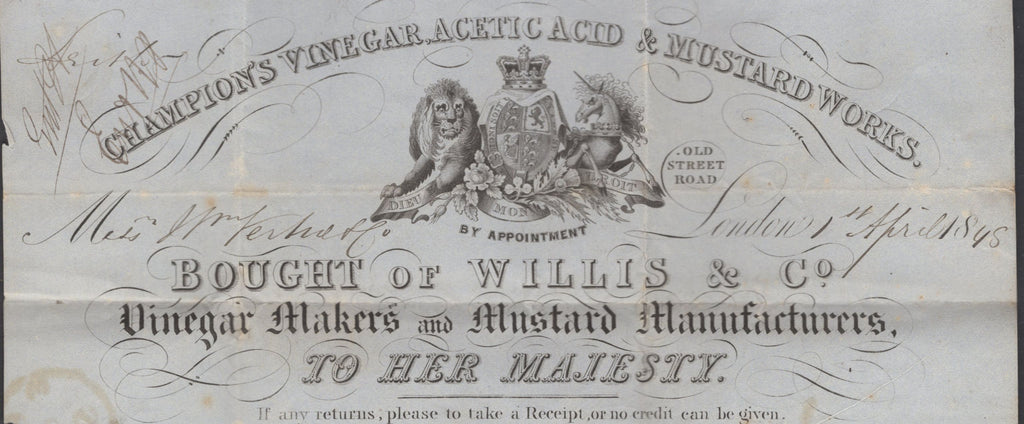 CHAMPION'S VINEGAR, ACETIC ACID & MUSTARD WORKS.
OLD
STREET
ROAD
DIEU MON DROIT
BY APPOINTMENT
Mess.rs Wm & Co
London 1st April 1848
BOUGHT OF WILLIS & Co.
Vinegar Makers and Mustard Manufacturers,
TO HER MAJESTY.
If any returns, please to take a Receipt, or no credit can be given.